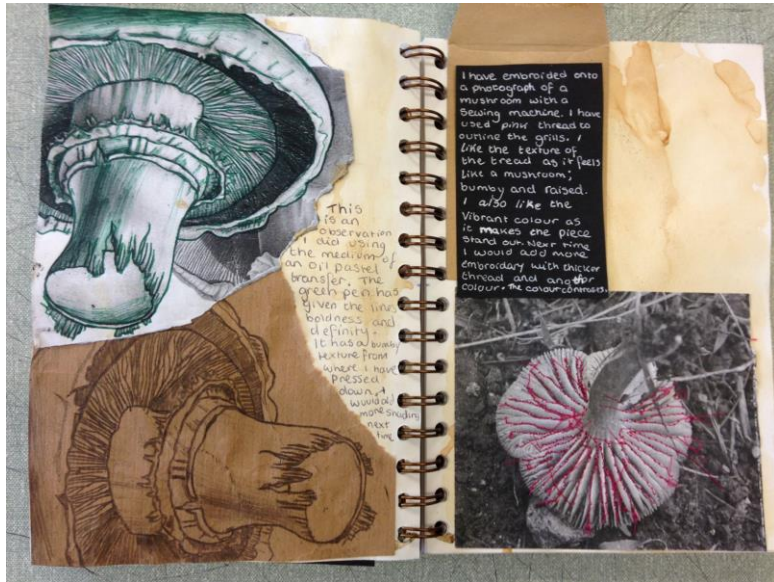 This
is an
observation
I did using
the medium of
an oil pastel
transfer. The
green pen has
given the lines
boldness and
definity.
It has a bumby
texture from
where I have
pressed
down. I
would add
more shading
next
time
I have embroided onto
a photograph of a
mushroom with a
Sewing machine. I have
used pink thread to
outline the grills. I
like the texture of
the tread as it feels
like a mushroom;
bumby and raised.
I also like the
Vibrant colour as
it makes the piece
Stand out. Next time
I would add more
embroidary with thicker
thread and another
colour. The colour contrasts.